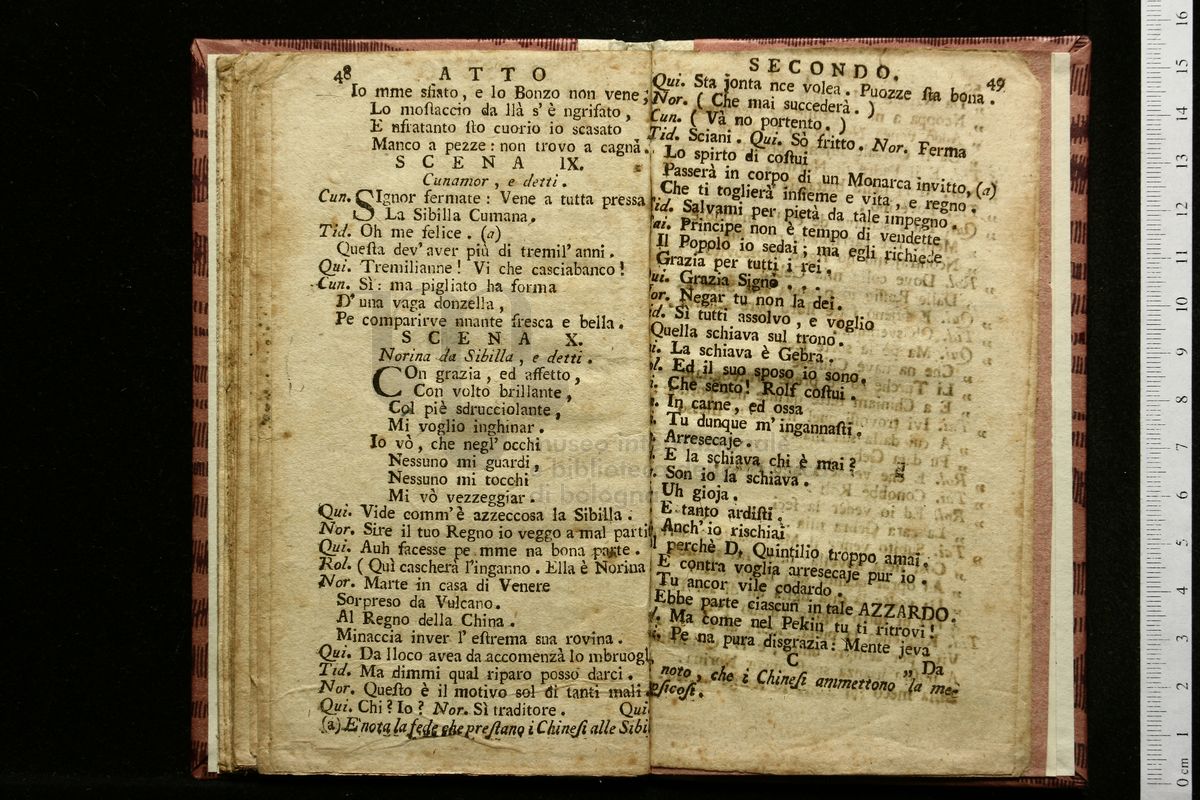 48 ATTO
Io mme sfiato, e lo Bonzo non vene;
Lo mostaccio da llà s'è ngrifato,
E nfratanto sto cuorio io scasato
Manco a pezze: non trovo a cagnà.
SCENA IX.
Cunamor, e detti.
Cun. SIgnor fermate: Vene a tutta pressa
La Sibilla Cumana.
Tid. Oh me felice. (a)
Questa dev' aver più di tremil' anni.
Qui. Tremilianne! Vi che casciabanco!
Cun. Sì: ma pigliato ha forma
D' una vaga donzella,
Pe comparirve nnante fresca e bella.
SCENA X.
Norina da Sibilla, e detti.
COn grazia, ed affetto,
Con volto brillante,
Col piè sdrucciolante,
Mi voglio inghinar.
Io vò, che negl' occhi
Nessuno mi guardi,
Nessuno mi tocchi
Mi vò vezzeggiar.
Qui. Vide comm'è azzeccosa la Sibilla.
Nor. Sire il tuo Regno io veggo a mal parti
Qui. Auh facesse pe mme na bona parte.
Rol. (Quì cascherà l'inganno. Ella è Norina
Nor. Marte in casa di Venere
Sorpreso da Vulcano.
Al Regno della China.
Minaccia inver l' estrema sua rovina.
Qui. Da lloco avea da accomenzà lo mbruogl
Tid. Ma dimmi qual riparo posso darci.
Nor. Questo è il motivo sol di tanti mali.
Qui. Chi? Io? Nor. Sì traditore. Qui.
(a) E' nota la fede che prestano i Chinesi alle Sibi
SECONDO. 49
Qui. Sta jonta nce volea. Puozze sta bona.
Nor. (Che mai succederà.)
Cun. (Và no portento.)
Tid. Sciani. Qui. Sò fritto. Nor. Ferma
Lo spirto di costui
Passerà in corpo di un Monarca invitto, (a)
Che ti toglierà insieme e vita, e regno.
id. Salvami per pietà da tale impegno.
ai. Principe non è tempo di vendette
Il Popolo io sedai; ma egli richiede
Grazia per tutti i rei.
ui. Grazia Signò...
or. Negar tu non la dei.
d. Sì tutti assolvo, e voglio
Quella schiava sul trono.
i. La schiava è Gebra.
l. Ed il suo sposo io sono.
i. Che sento! Rolf costui.
. In carne, ed ossa
. Tu dunque m' ingannasti.
. Arresecaje.
. E la schiava chi è mai?
. Son io la schiava.
Uh gioja.
E tanto ardisti.
Anch' io rischiai
perchè D. Quintilio troppo amai.
E contra voglia arresecaje pur io.
Tu ancor vile codardo.
Ebbe parte ciascun in tale AZZARDO.
. Ma come nel Pekin tu ti ritrovi!
i. Pe na pura disgrazia: Mente jeva
C „ Da
noto, che i Chinesi ammettono la me-
esicosi.
museo
biblioteca
di bologna